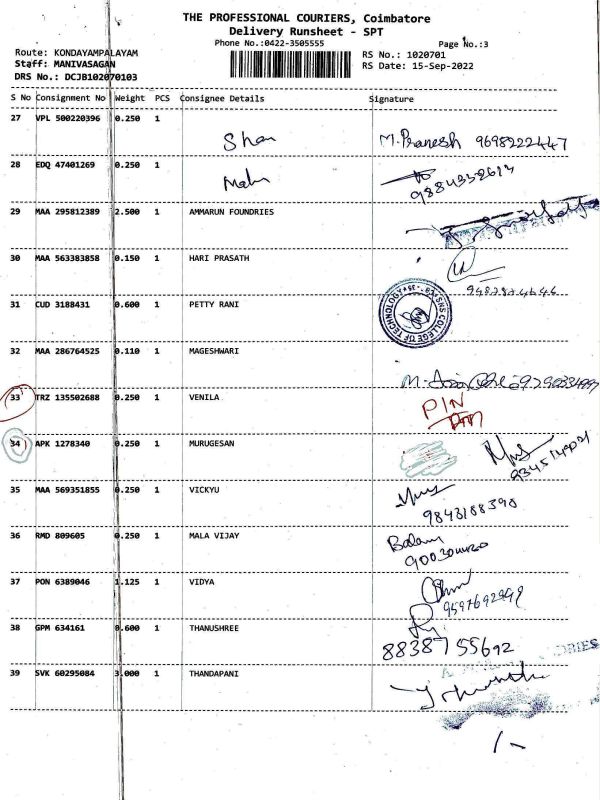 THE PROFESSIONAL COURIERS, Coimbatore
Delivery Runsheet - SPT
Phone No.:0422-3505555
Page No.:3
Route: KONDAYAMPALAYAM
Staff: MANIVASAGAN
DRS No.: DCJB102070103
RS No.: 1020701
RS Date: 15-Sep-2022
S No Consignment No Weight PCS Consignee Details Signature
27 VPL 500220396 0.250 1
M.Pranesh 9698222447
28 EDQ 47401269 0.250 1
29 MAA 295812389 2.500 1 AMMARUN FOUNDRIES
30 MAA 563383858 0.150 1 HARI PRASATH
31 CUD 3188431 0.600 1 PETTY RANI
SNS COLLEGE OF TECHNOLOGY
32 MAA 286764525 0.110 1 MAGESHWARI
33 TRZ 135502688 0.250 1 VENILA
PIN
34 APK 1278340 0.250 1 MURUGESAN
35 MAA 569351855 0.250 1 VICKYU
9843188390
36 RMD 809605 0.250 1 MALA VIJAY
37 PON 6389046 1.125 1 VIDYA
38 GPM 634161 0.600 1 THANUSHREE
8838755692
39 SVK 60295084 3.000 1 THANDAPANI